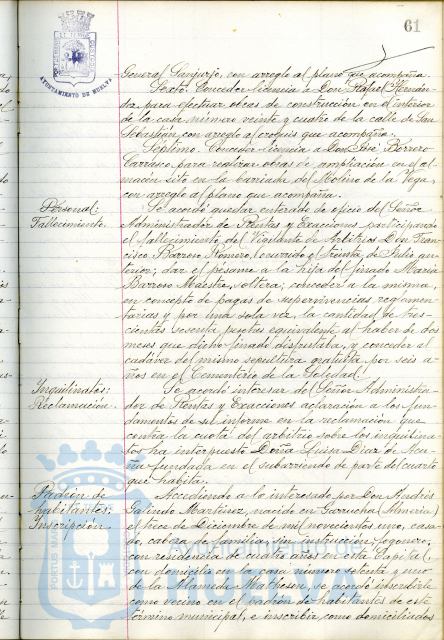 61
AYUNTAMIENTO DE HUELVA
General Sanjurjo, con arreglo al plano que acompaña.
Sexto: Conceder licencia a Don Rafael Hernán-
dez para efectuar obras de construcción en el interior
de la casa número veinte y cuatro de la calle de San
Sebastián, con arreglo al croquis que acompaña.
Septimo: Conceder licencia a Don José Borrero
Carrasco para realizar obras de ampliación en el al-
macén sito en la barriada del Molino de la Vega,
con arreglo al plano que acompaña.
Personal:
Fallecimiento.
Se acordó quedar enterado de oficio del Señor
Administrador de Rentas y Exacciones participando
el fallecimiento del Vigilante de Arbitrios Don Fran-
cisco Barroso Romero, ocurrido el treinta de Julio an-
terior; dar el pésame a la hija del finado María
Barroso Maestre, soltera; conceder a la misma,
en concepto de pagas de supervivencias reglamen-
tarias y por una sola vez, la cantidad de tres-
cientas sesenta pesetas equivalente al haber de dos
meses que dicho finado disfrutaba, y conceder al
cadáver del mismo sepultura gratuita por seis a-
ños en el Cementerio de la Soledad.
Inquilinatos:
Reclamación.
Se acordó interesar del Señor Administra-
dor de Rentas y Exacciones aclaración a los fun-
damentos de su informe en la reclamación que
contra la cuota del arbitrio sobre los inquilina-
tos ha interpuesto Doña Luisa Diaz de Acu-
ña fundada en el subarriendo de parte del cuarto
que habita.
Padrón de
habitantes:
Inscripción.
Accediendo a lo interesado por Don Andrés
Galindo Martínez, nacido en Garrucha (Almería)
el trece de Diciembre de mil novecientos uno, casa-
do, cabeza de familia, sin instrucción, fogonero,
con residencia de cuatro años en esta Capital,
con domicilio en la casa número setenta y uno
de la Alameda Matheson, se acordó inscribirle
como vecino en el padrón de habitantes de este
término municipal, e inscribir como domiciliados